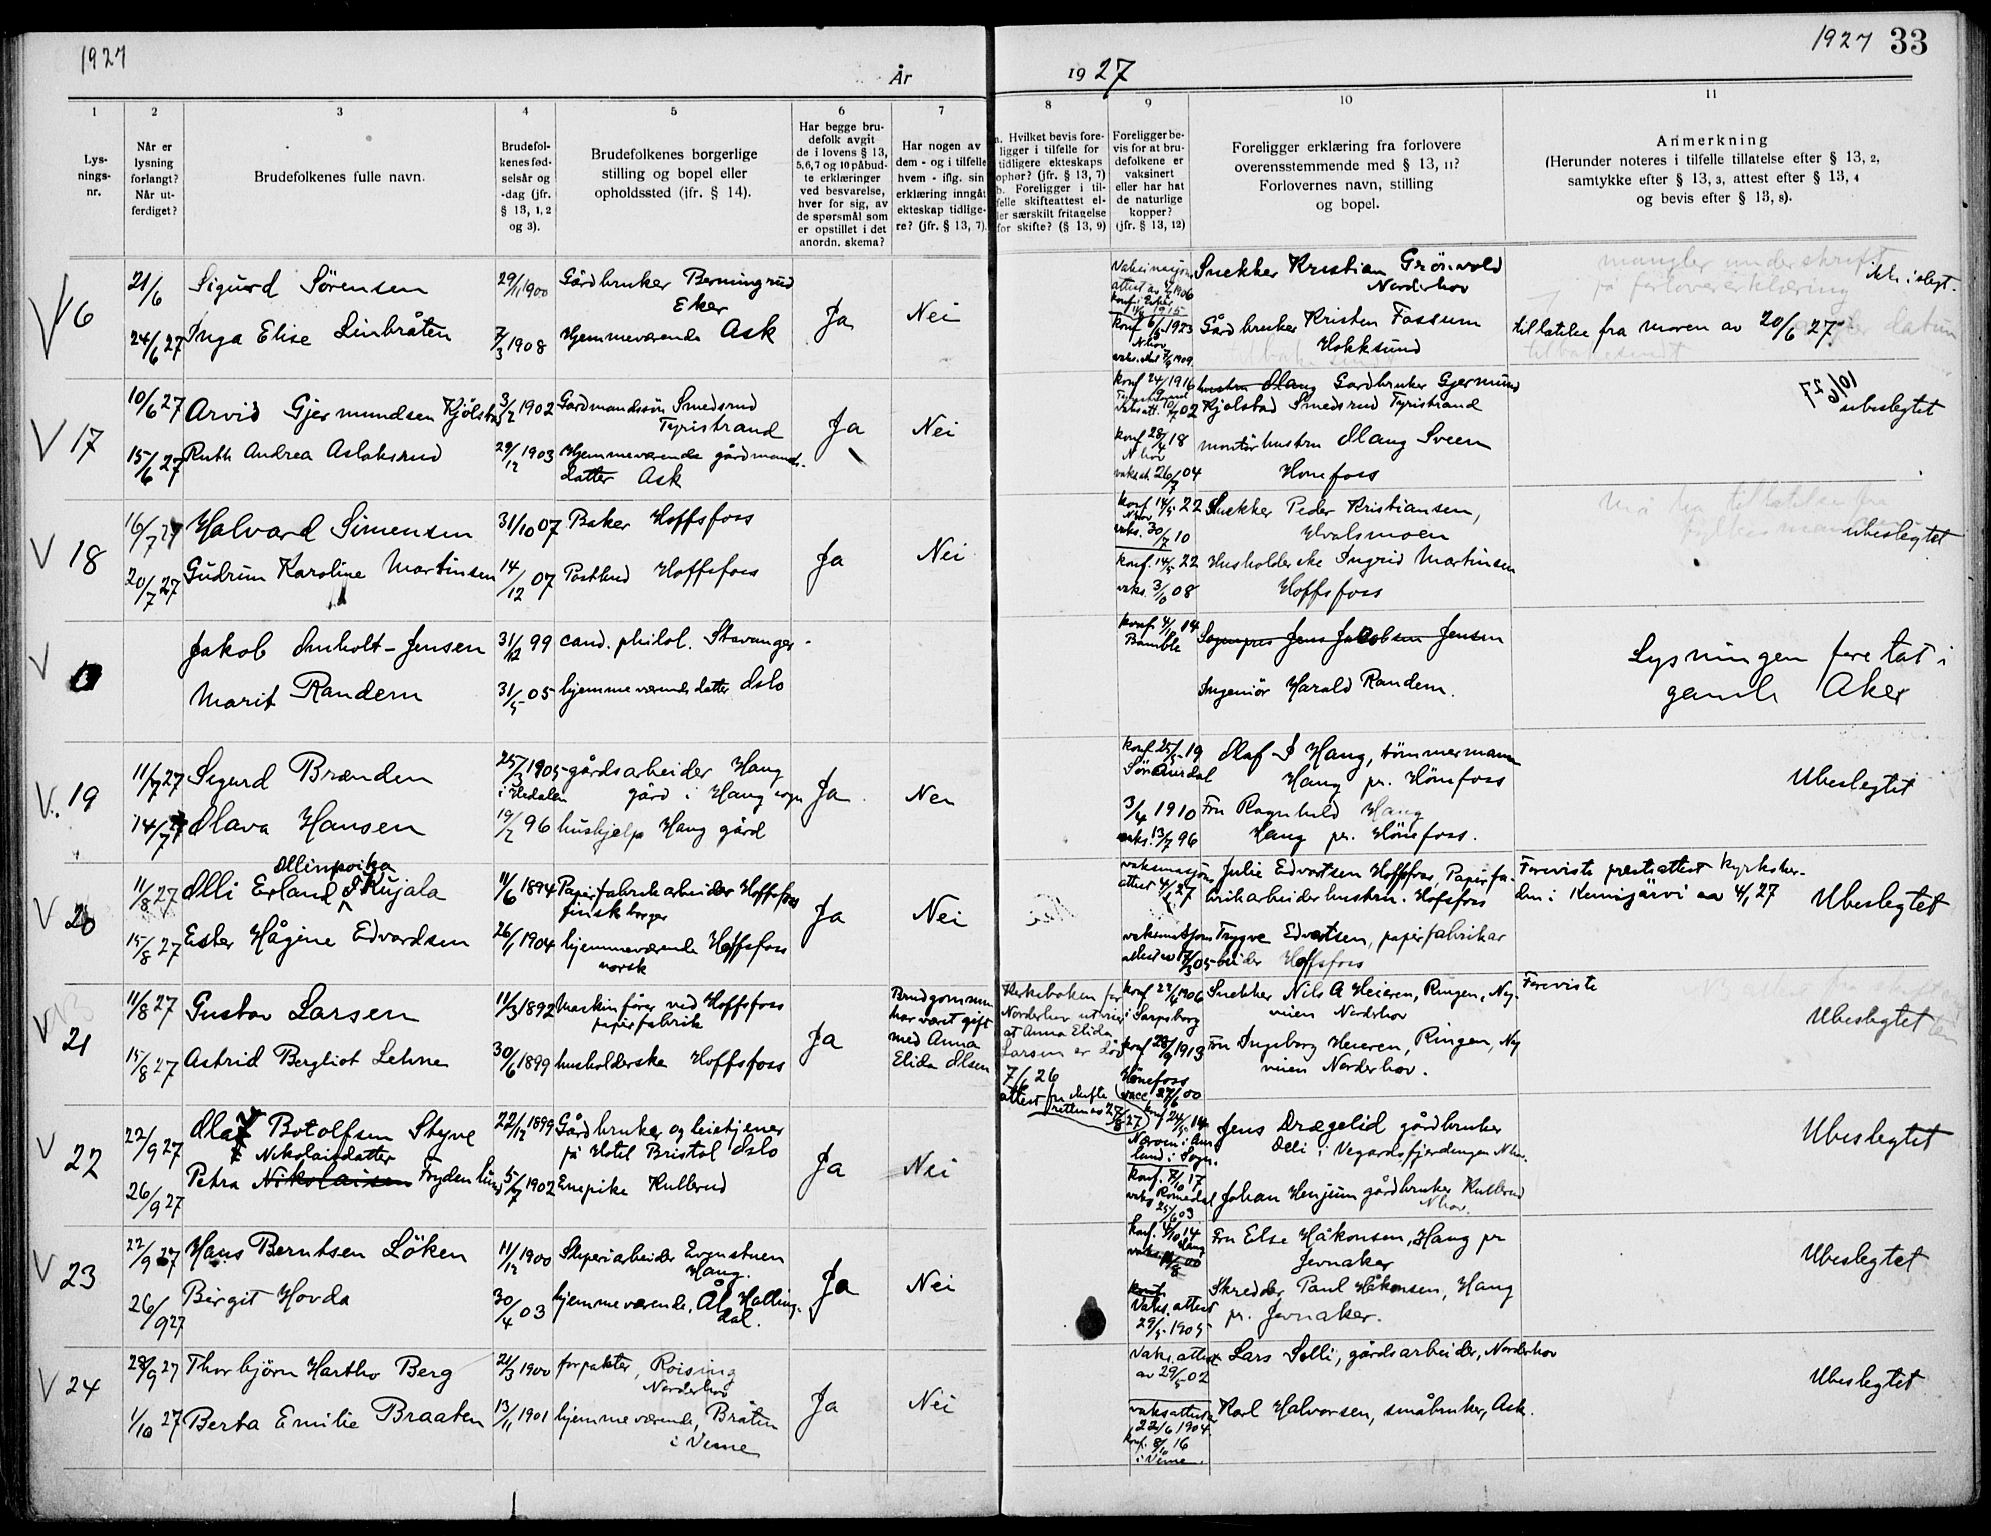 1927
År
19 27
1927 33
1
2
3
4
5
6
7
8
9
10
11
Lys-
nings-
nr.
Når er
lysning
forlangt?
Når ut-
ferdiget?
Brudefolkenes fulle navn.
Brudefol-
kenes fød-
selsår og
-dag (jfr.
§ 13, 1, 2
og 3).
Brudefolkenes borgerlige
stilling og bopel eller
opholdssted (jfr. § 14).
Har begge bru-
defolk avgit
de i lovens § 13,
5, 6, 7 og 10 påbud-
te erklæringer
ved besvarelse,
hver for sig, av
de spørsmål som
er opstillet i det
anordn. skema?
Har nogen av
dem - og i tilfelle
hvem - iflg. sin
erklæring inngåt
ekteskap tidlige-
re? (jfr. § 13, 7).
a. Hvilket bevis fore-
ligger i tilfelle for
tidligere ekteskaps
ophør? (jfr. § 13, 7)
b. Foreligger i til-
felle skifteattest el-
ler særskilt fritagelse
for skifte? (§ 13, 9)
Foreligger be-
vis for at bru-
defolkene er
vaksinert
eller har hat
de naturlige
kopper?
(jfr. § 13, 12)
Foreligger erklæring fra forlovere
overensstemmende med § 13, 11?
Forlovernes navn, stilling
og bopel.
Anmerkning
(Herunder noteres i tilfelle tillatelse efter § 13, 2,
samtykke efter § 13, 3, attest efter § 13, 4
og bevis efter § 13, 8).
V 16
21/6
24/6 27
Sigurd Sörensen
Inga Elise Linbråten
29/11 1900
7/3 1908
Gårdbruker Berningrud
Eker
Hjemmeværende Ask
Ja
Nei
konf 6/5 1923
Nhov
Snekker Kristian Grönvold
Norderhov
Gårdbruker Kristen Fossum
Hokksund
mangler underskrift
på forlovererklæring
ikke i slegt.
tillatelse fra moren av 20/6 27.
datum
tilbakesendt
V 17
10/6 27
15/6 27
Arvid Gjermundsen Kjölstad
Ruth Andrea Aslaksrud
3/2 1902
29/12 1903
Gardmandssön Smedsrud
Tyristrand
Hjemmeværende gårdmands-
datter Ask
Ja
Nei
konf 24/ 1916
konf 28/4 18
Nhov
vaksat. 26/7 04
hustru Mang Gardbruker Gjermund
Kjölstad Smedsrud Tyristrand
montörhustru Mang Sveen
Hönefoss
10/6 27
ubeslegtet
V 18
16/7 27
20/7 27
Halvard Simensen
Gudrun Karoline Martinsen
31/10 07
14/12 07
Baker Hoffsfoss
Postbud Hoffsfoss
Ja
Nei
konf 14/5 22
Nhov
vaks. 30/7 10
konf. 14/5 22
vaks. 3/10 08
Snekker Peder Kristiansen,
Hvalsmoen
Husholderske Ingrid Martinsen
Hoffsfoss
Må ha tillatelse fra
fylkesmannen
ubeslegtet
V
Jakob Anholt-Jensen
Marit Randem
31/12 99
31/5 05
cand. philol. Stavanger
hjemmeværende datter Oslo
konf. 4/ 14
Bamble
Sogneprest Jens Jakobsen Jensen
Ingeniör Harald Randem.
Lysningen foretat i
gamle Aker
V. 19
11/7 27
14/7 27
Sigurd Brænden
Olava Hansen
25/3 1905
i Hedalen
19/2 96
gårdsarbeider Haug
gård i Haug sogn
hushjelp Haug gård
Ja
Nei
konf. 25/5 19
Sör Aurdal
3/4 1910
vaks. 13/7 96
Olaf J Haug, tömmermann
Haug pr. Hönefoss
Fru Ragnhild Haug
Haug pr. Hönefoss.
Ubeslegtet
V 20
11/8 27
15/8 27
Ollinpoika
Olli Erland Kujala
Ester Hågine Edvardsen
11/6 1894
26/1 1904
Papirfabrikarbeider Hoffsfoss
finsk borger
hjemmeværende Hoffsfoss
norsk
Ja
Nei
vaksinasjons
attest 4/ 27
vaksinasjons
attest av 17/3 05
Julie Edvartsen Hoffsfoss, Papirfa-
brikarbeiderhustru. Hofsfoss
Trygve Edvartsen, papirfabrikar
beider Hoffsfoss
Foreviste prestiattest Kyrksher-
den i Kemijärvi av 4/ 27
Ubeslegtet
V 21
11/8 27
15/8 27
Gustav Larsen
Astrid Bergliot Lehne
11/3 1892
30/6 1899
Maskinförer ved Hoffsfoss
papirfabrik
husholderske Hoffsfoss
Ja
Brudgommen
har vært gift
med Anna
Elida Olsen
Kirkeboken for
Norderhov utviser
at Anna Elida
Larsen er död
7/6 26
attest fra skifte
retten av 27/8 27
konf 27/ 1906
i Sarpsborg
konf 28/9 1913
Hönefoss
vacc 27/6 00
Snekker Nils A Heieren, Ringen, Ny-
veien Norderhov
Fru Ingeborg Heieren, Ringen, Ny
veien Norderhov.
Foreviste
Ubeslegtet
V 22
22/9 27
26/9 27
Olaf Botolfsen Styve
Nikolaidatter
Petra Nikolaisen Frydenlund
22/12 1899
5/7 1902
Gårdbruker og leietjener
på Hotel Bristol Oslo
Enepike Kullerud
Ja
Nei
konf 24/5 14
Nærøen i Aur
land i Sogn.
konf. 7/10 17
vaks Romedal
25/6 03
Jens Drægelid gårdbruker
Oelli i Vegardsfjerdingen Nhov.
Johan Henjum gårdbruker Kullerud
Nhov.
Ubeslegtet
V 23
22/9 27
26/9 27
Hans Berntsen Löken
Birgit Hovda
11/12 1900
30/4 03
Sliperiarbeider Evenstuen
Haug.
hjemmeværende, Ål Halling-
dal.
Ja
Nei
konf. 4/10 14
Haug
konf.
Vaks. attest
29/5 1905
Fru Else Håkonsen, Haug pr
Jevnaker
Skredder Paul Håkonsen, Haug
pr. Jevnaker.
Ubeslegtet
V 24
28/9 27
1/10 27
Thorbjörn Hartho Berg
Berta Emilie Braaten
21/3 1900
13/11 1901
forpakter, Roising
Norderhov
hjemmeværende, Bråten
i Veme
Ja
Nei
Vaks. attest
av 29/5 02
vaksattest
22/6 1904
konf. 8/ 16
i Veme.
Lars Solli, gårdsarbeider, Norderhov
Karl Halvorsen, småbruker, Ask.
Ubeslegtet